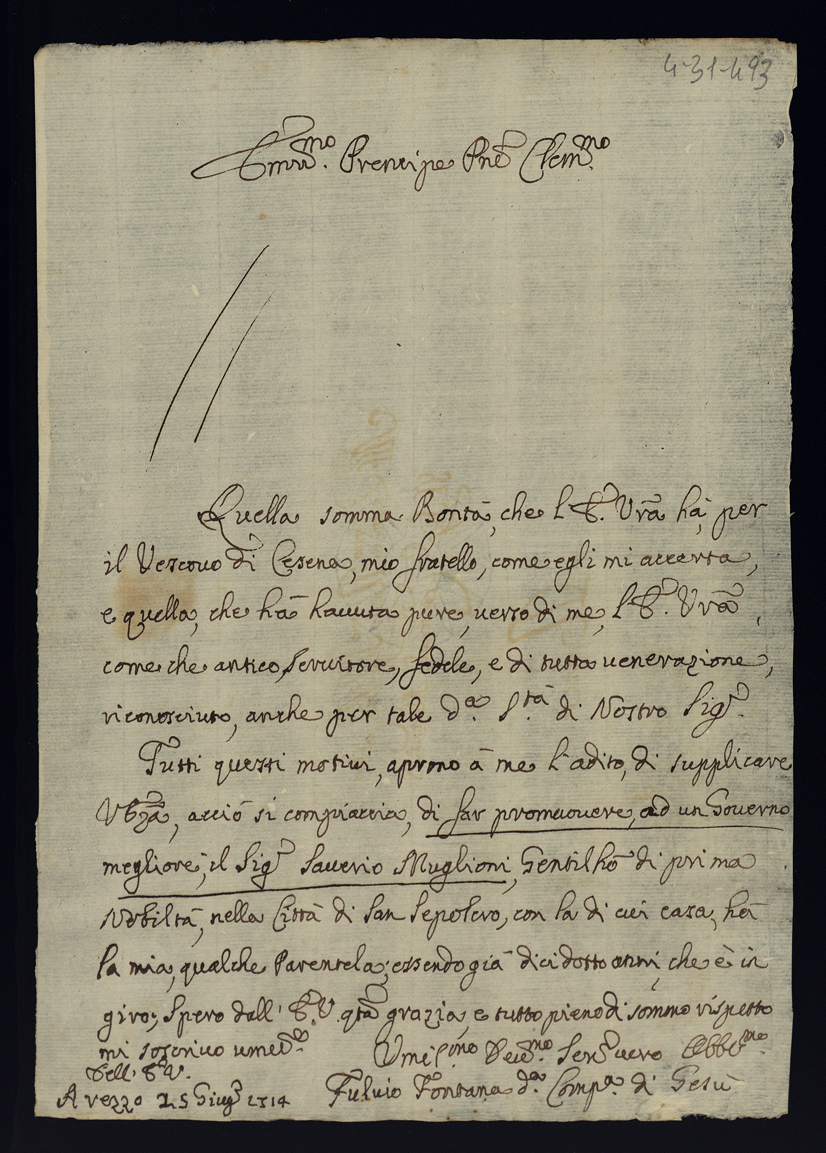 4-31-493
Em.mo Prencipe Pne Clem.mo
Quella somma Bontà, che l'E. Vrã hà, per
il Vescovo di Cesena, mio fratello, come egli mi accerta,
e quella, che hà havuta pure, verso di me, l'E. Vrã,
come che antico, servitore, fedele, e di tutta venerazione,
riconosciuto, anche per tale d.a S.tà di Nostro Sig.r
Tutti questi motivi, aprono à me l'adito, di supplicare
V. Eza, acciò si compiaccia, di far promuovere, ad un Governo
megliore, il Sig.r Saverio Muglioni, Gentilhõ di prima
Nobiltà, nella Città di San Sepolcro, con la di cui casa, hà
la mia, qualche Parentela; essendo già dicidotto anni, che è in
giro; Spero dall' E. V. qta grazia, e tutto pieno di sommo rispetto
mi soscrivo umem.te
Dell' E. V. Umil.mo Dev.mo Ser.e vero Obbl.mo
Arezzo 25 Giug.o 1714 Fulvio Fontana d.a Comp.a di Gesù